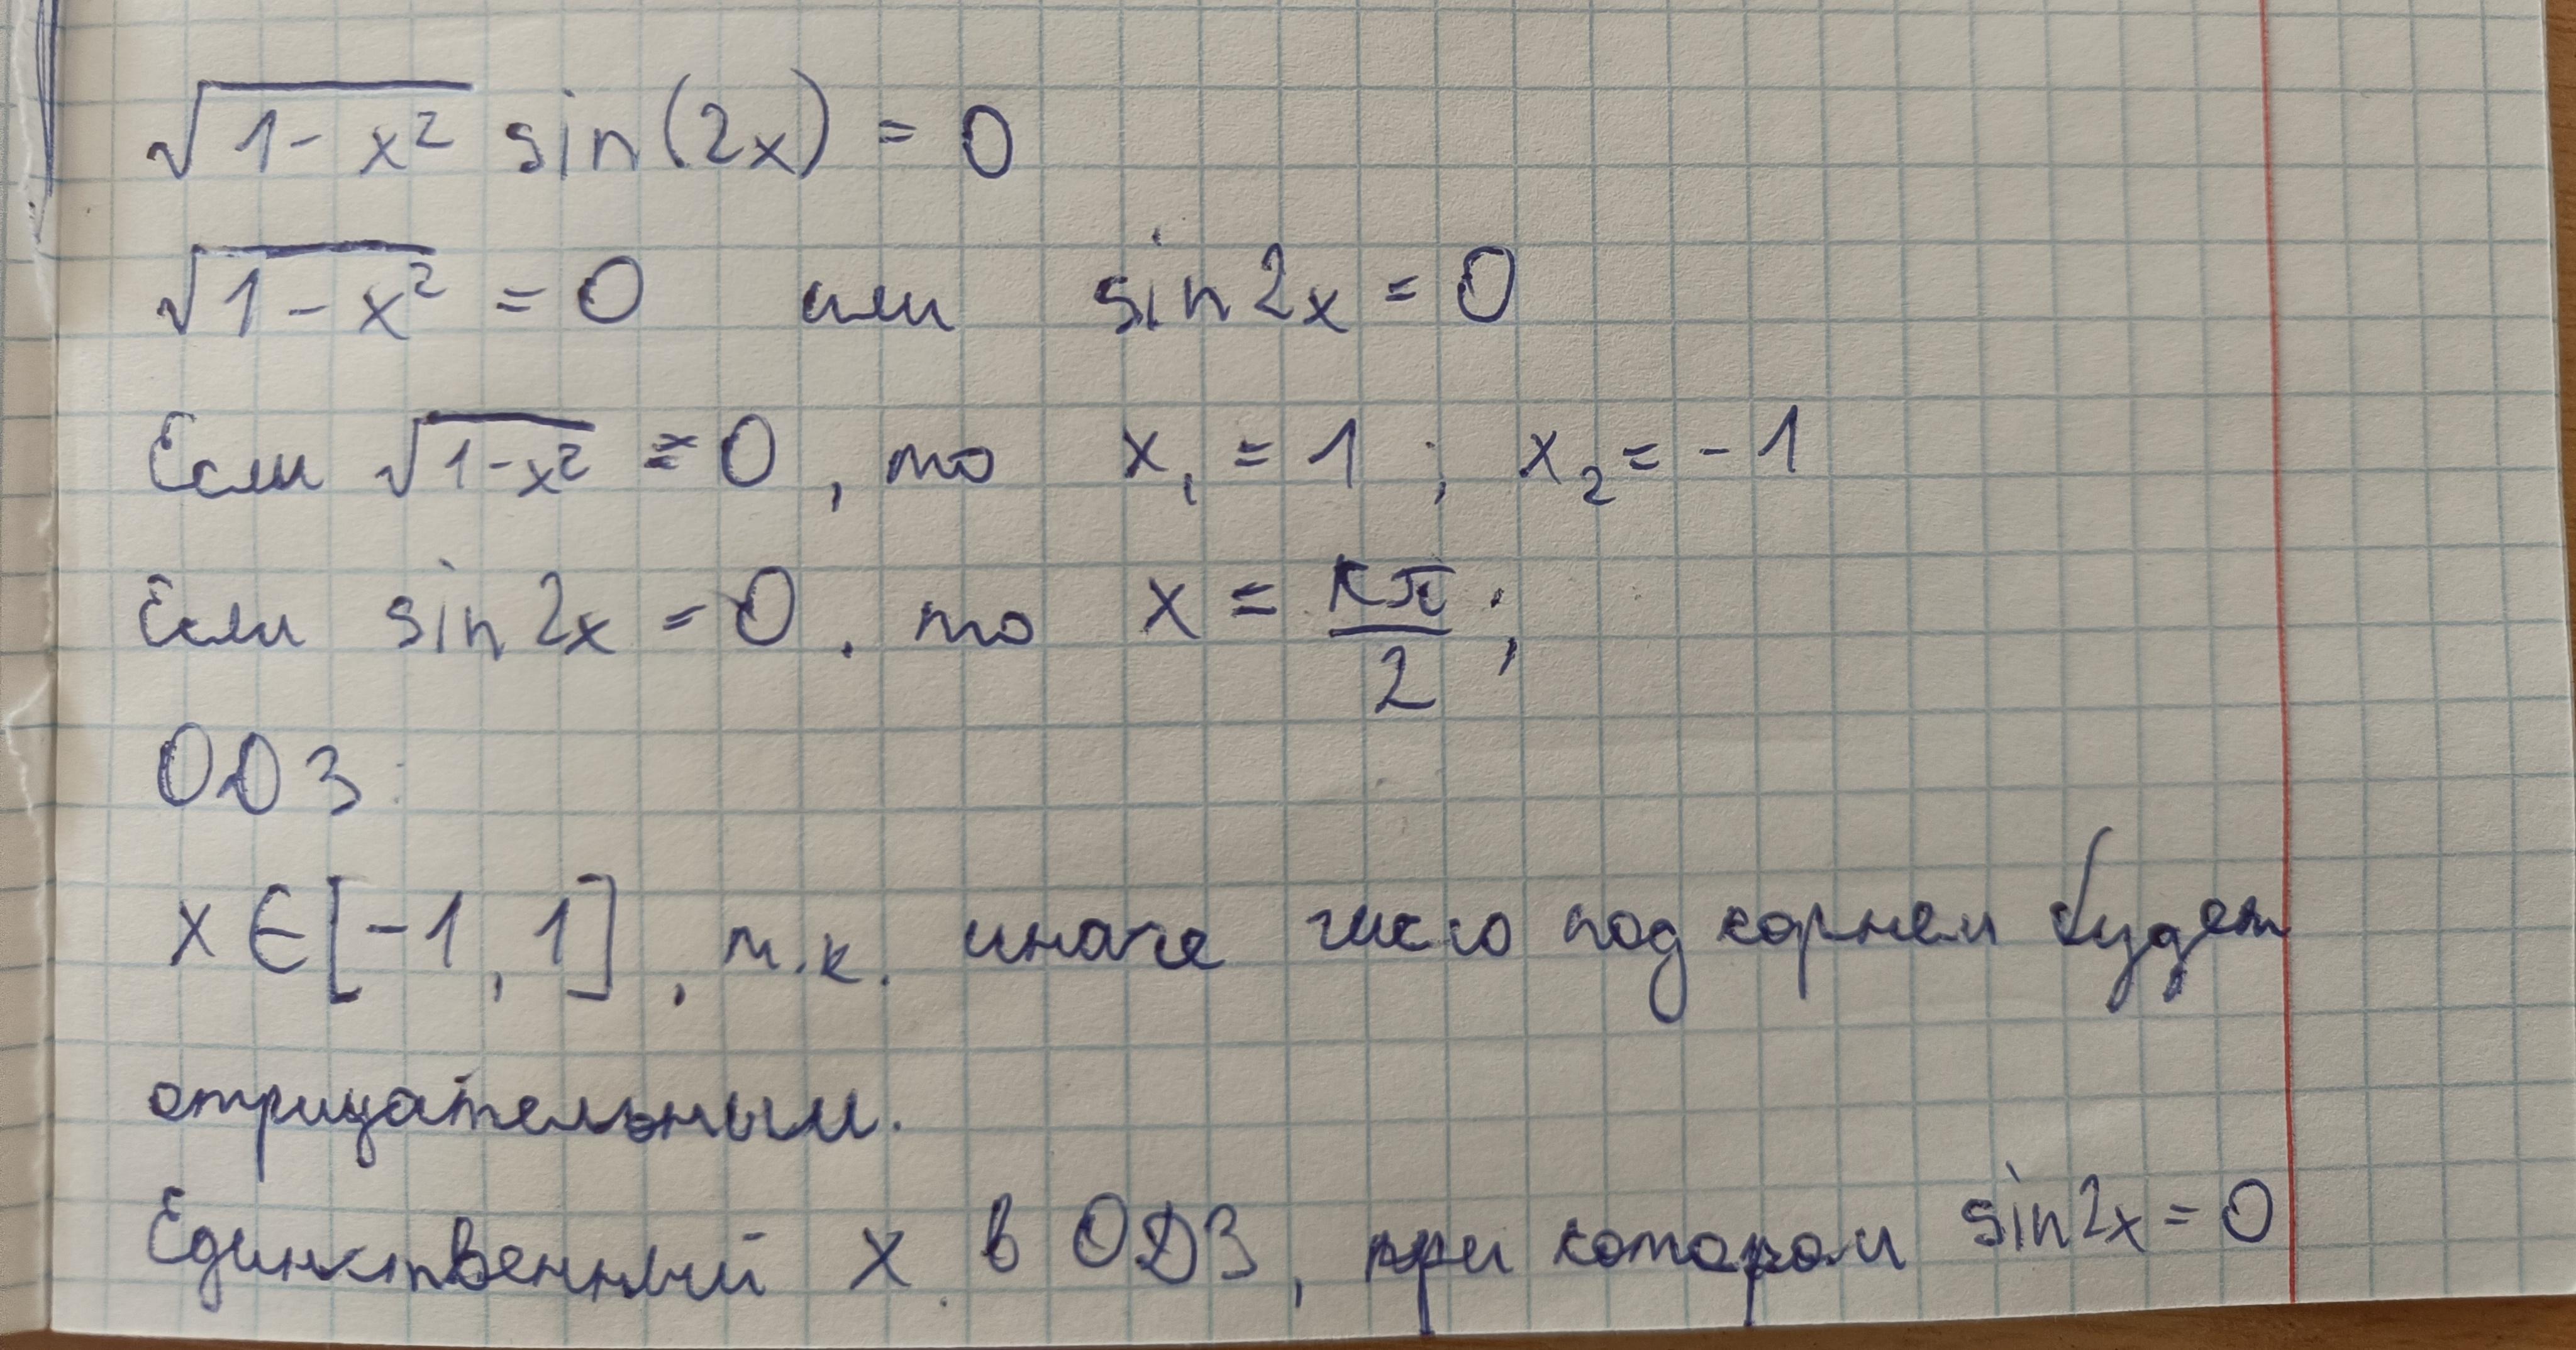 √(1 - x²) sin(2x) = 0
√(1 - x²) = 0 или sin2x = 0
Если √(1-x²) = 0, то x₁ = 1; x₂ = -1
Если sin2x = 0, то x = kπ/2;
ОДЗ:
x ∈ [-1, 1], т.к. иначе число под корнем будет
отрицательным.
Единственный x в ОДЗ, при котором sin2x = 0